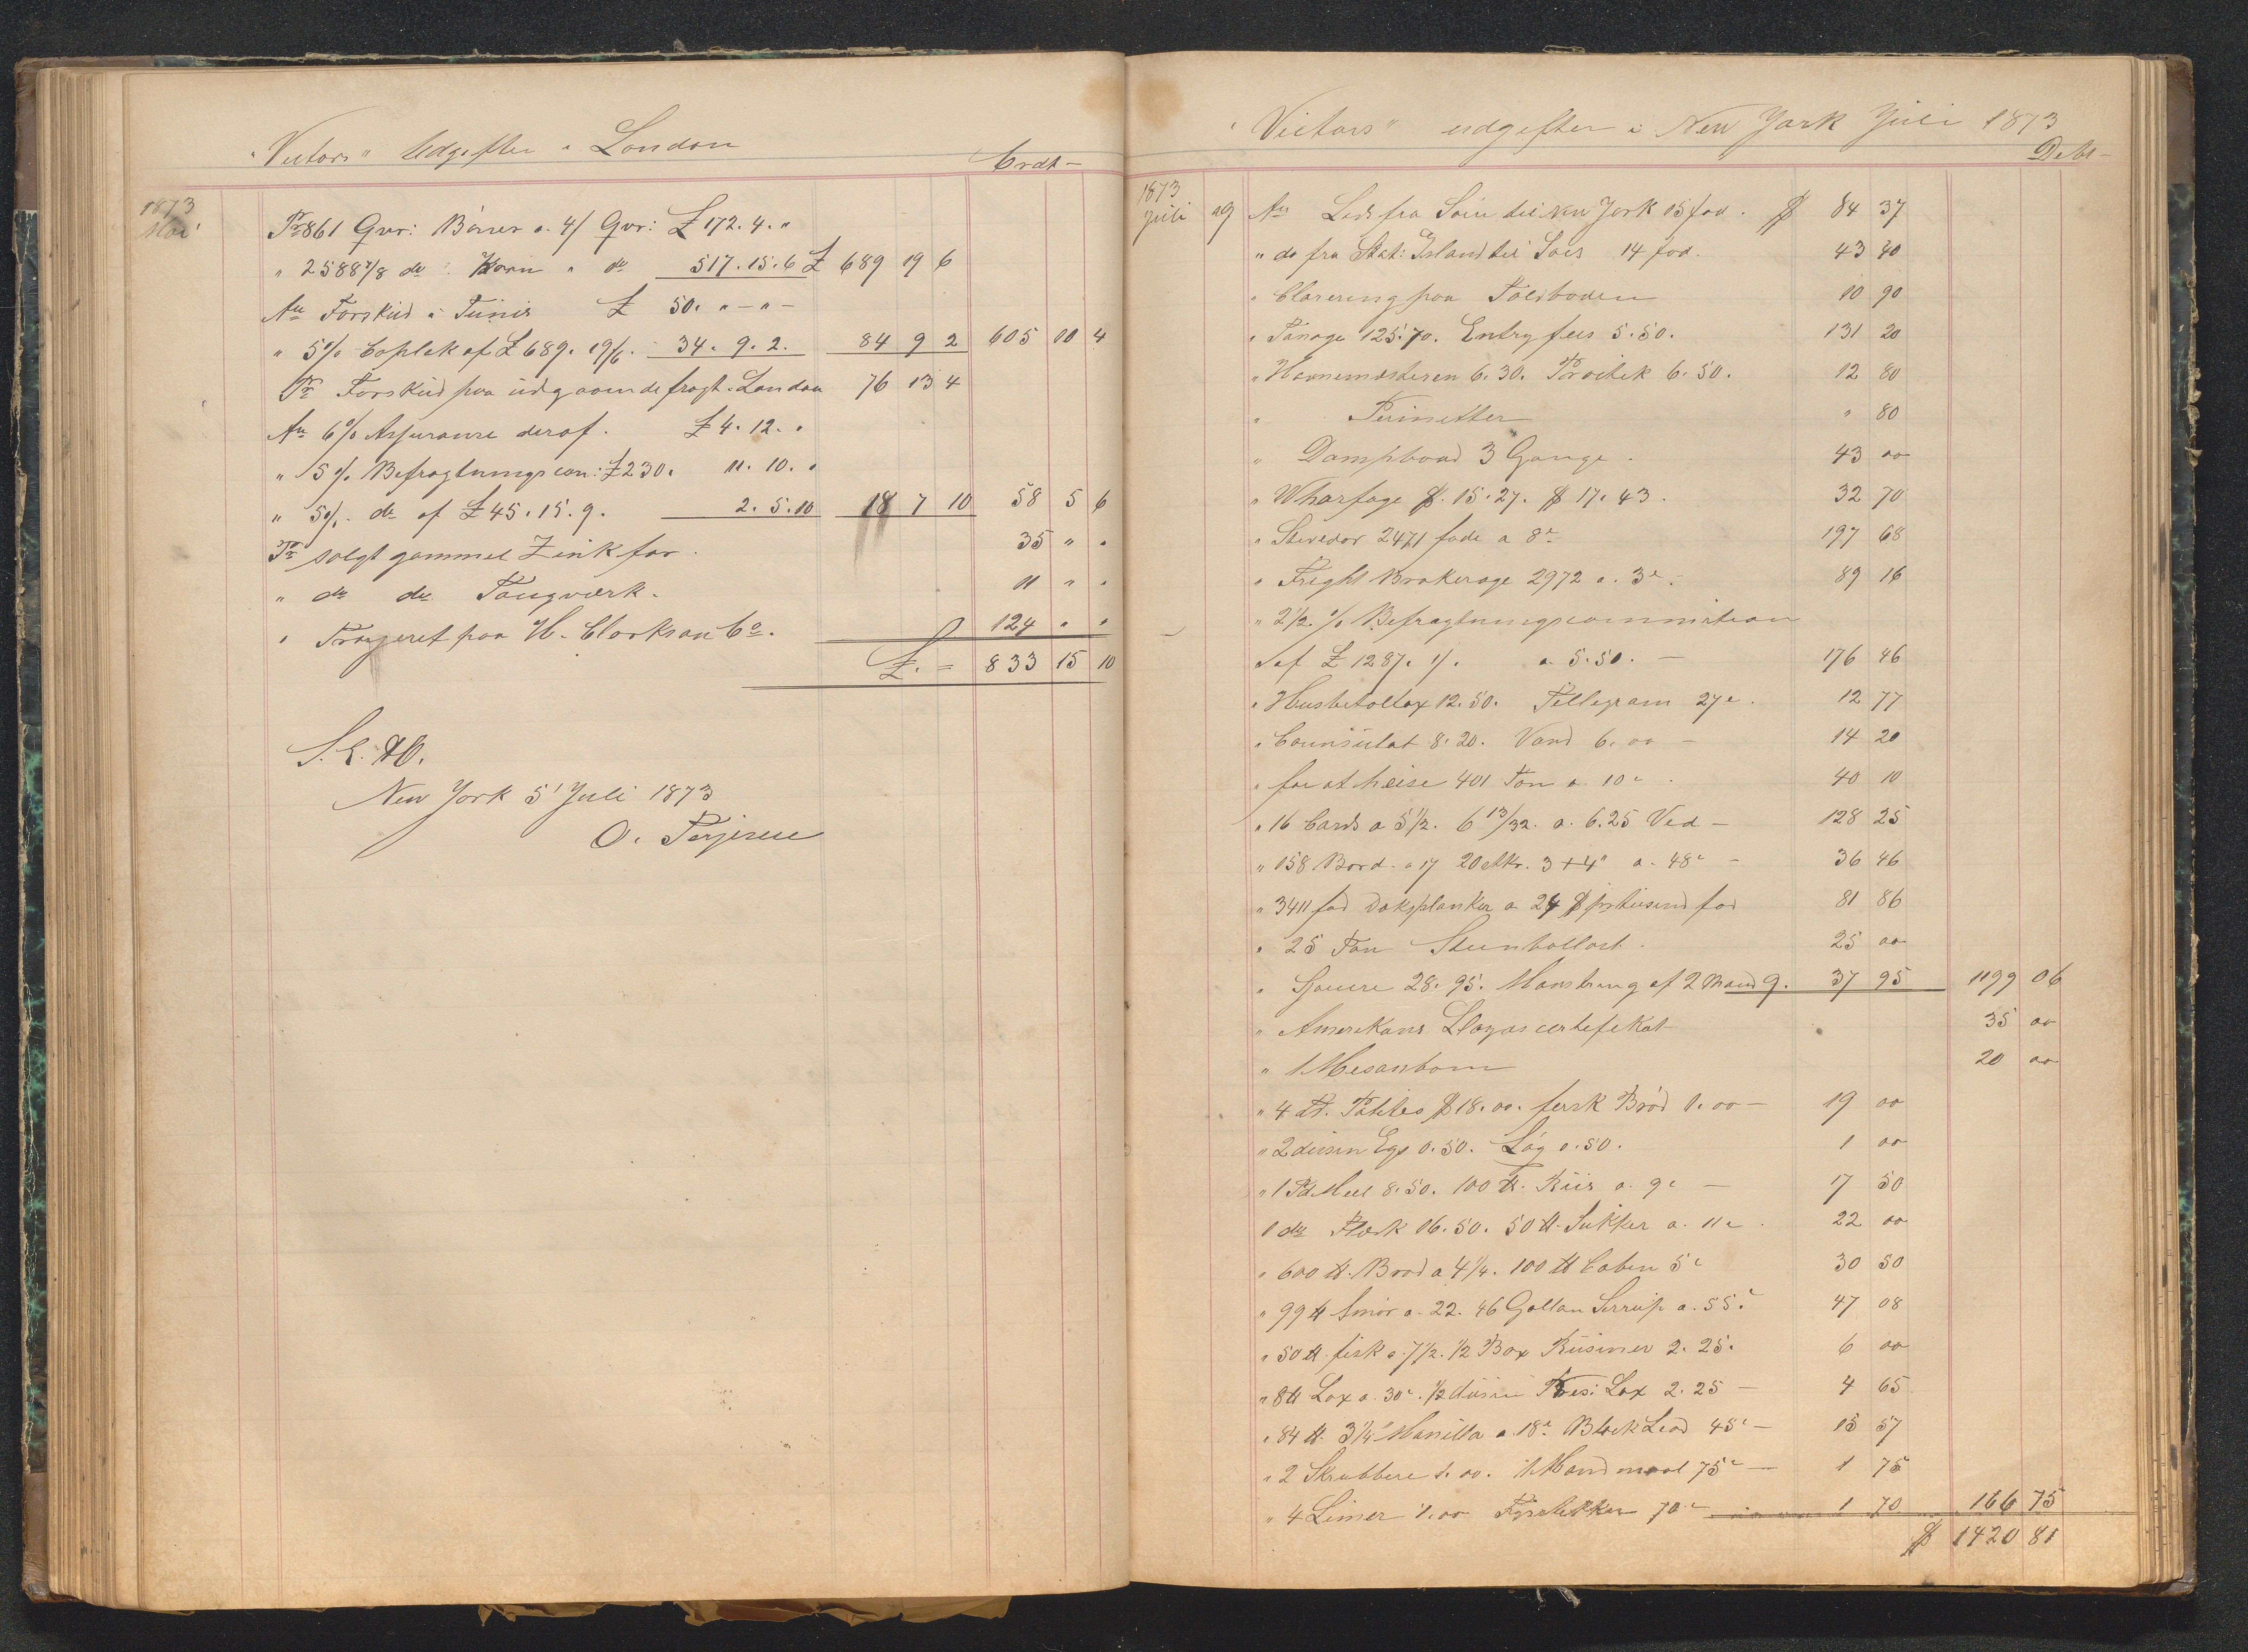 "Victors" Udgifter i London
Credt-
1873
Mai
Pr 861 Qvr: Bønner a. 4/ Qvr: £ 172. 4. "
" 2588 7/8 do : Korn " do 517. 15. 6 £ 689 19 6
An Forskud i Tunis £ 50. " - " -
" 5% Caplak af £ 689. 19/6. 34. 9. 2. 84 9 2 605 10 4
Pr Forskud paa udgaaende fragt i London 76 13 4
An 6% Assurance deraf. £ 4. 12. "
" 5% Befragtningscom: £ 230. 11. 10. "
" 5%. do af £ 45. 15. 9. 2. 5. 10 18 7 10 58 5 6
Pr solgt gammel Zink for 35 " "
" do do Tougværk. 11 " "
" Trazeret paa H. Clarkson Co. 124 " "
£. = 833 15 10
S. E. & O.
New York 5' Juli 1873
O. Terjesen
"Victors" udgifter i New York Juli 1873
Debt-
1873
Juli 29 An Lods fra Soen til New York 15 fod. $ 84 37
" do fra Stat: Island til Soes 14 fod. 43 40
" Clarering paa Toldboden 10 90
" Tonage 125.70. Entry fees 5.50. 131 20
" Havnemesteren 6.30. 6.50. 12 80
" Permitter " 80
" Dampbaad 3 Gange. 43 00
" Wharfage $. 15.27. $ 17.43. 32 70
" Stevedor 2471 fade a 8c 197 68
" Freight Brokerage 2972 a. 3c. 89 16
" 2 1/2 % Befragtningscommission
af £ 1287. 1/. a. 5.50. - 176 46
" 12.50. Tellegram 27c. 12 77
" Counsulat 8.20. Vand 6.00 - 14 20
" for at heise 401 Ton a. 10c. 40 10
" 16 Cards a 5 1/2. 6 13/32. a. 6.25 Ved - 128 25
" 158 Bord. a 17 20 Stkr. 3+4" a. 48c - 36 46
" 3411 fod Dæksplanker a 24 $ pr tusend fod 81 86
" 25 Ton Steenballast. 25 00
" Sjouere 28.95. Mønstring af 2 Mand 9. 37 95 1199 06
" Amerikans Lloyds certefikat 35 00
" 1 Mesanbom 20 00
" 4 Tr. Potetes $ 18.00. fersk Brød 1.00 - 19 00
" 2 dusin Egs 0.50. Løg 0.50. 1 00
" 1 Td Meel 8.50. 100 ℔. Riis a. 9c - 17 50
1 do Flesk 16.50. 50 ℔. Sukker a. 11c. 22 00
" 600 ℔. Brød a 4 1/4. 100 ℔ 5c 30 50
" 99 ℔ Smør a. 22. 46 Gallan Sirrup a. 55c 47 08
" 50 ℔. fisk a. 7 1/2. 1/2 Box Rusiner 2.25. 6 00
" 8 ℔ Lax a. 30c. 1/2 dusin Pres: Lax 2.25 - 4 65
" 84 ℔. 3 1/4" Manilla a. 18c. Black Lead 45c - 15 57
" 2 Skrubbere 1.00. 75c - 1 75
" 4 Limer 1.00 Fyrstikker 70c 1 70 166 75
$ 1420 81